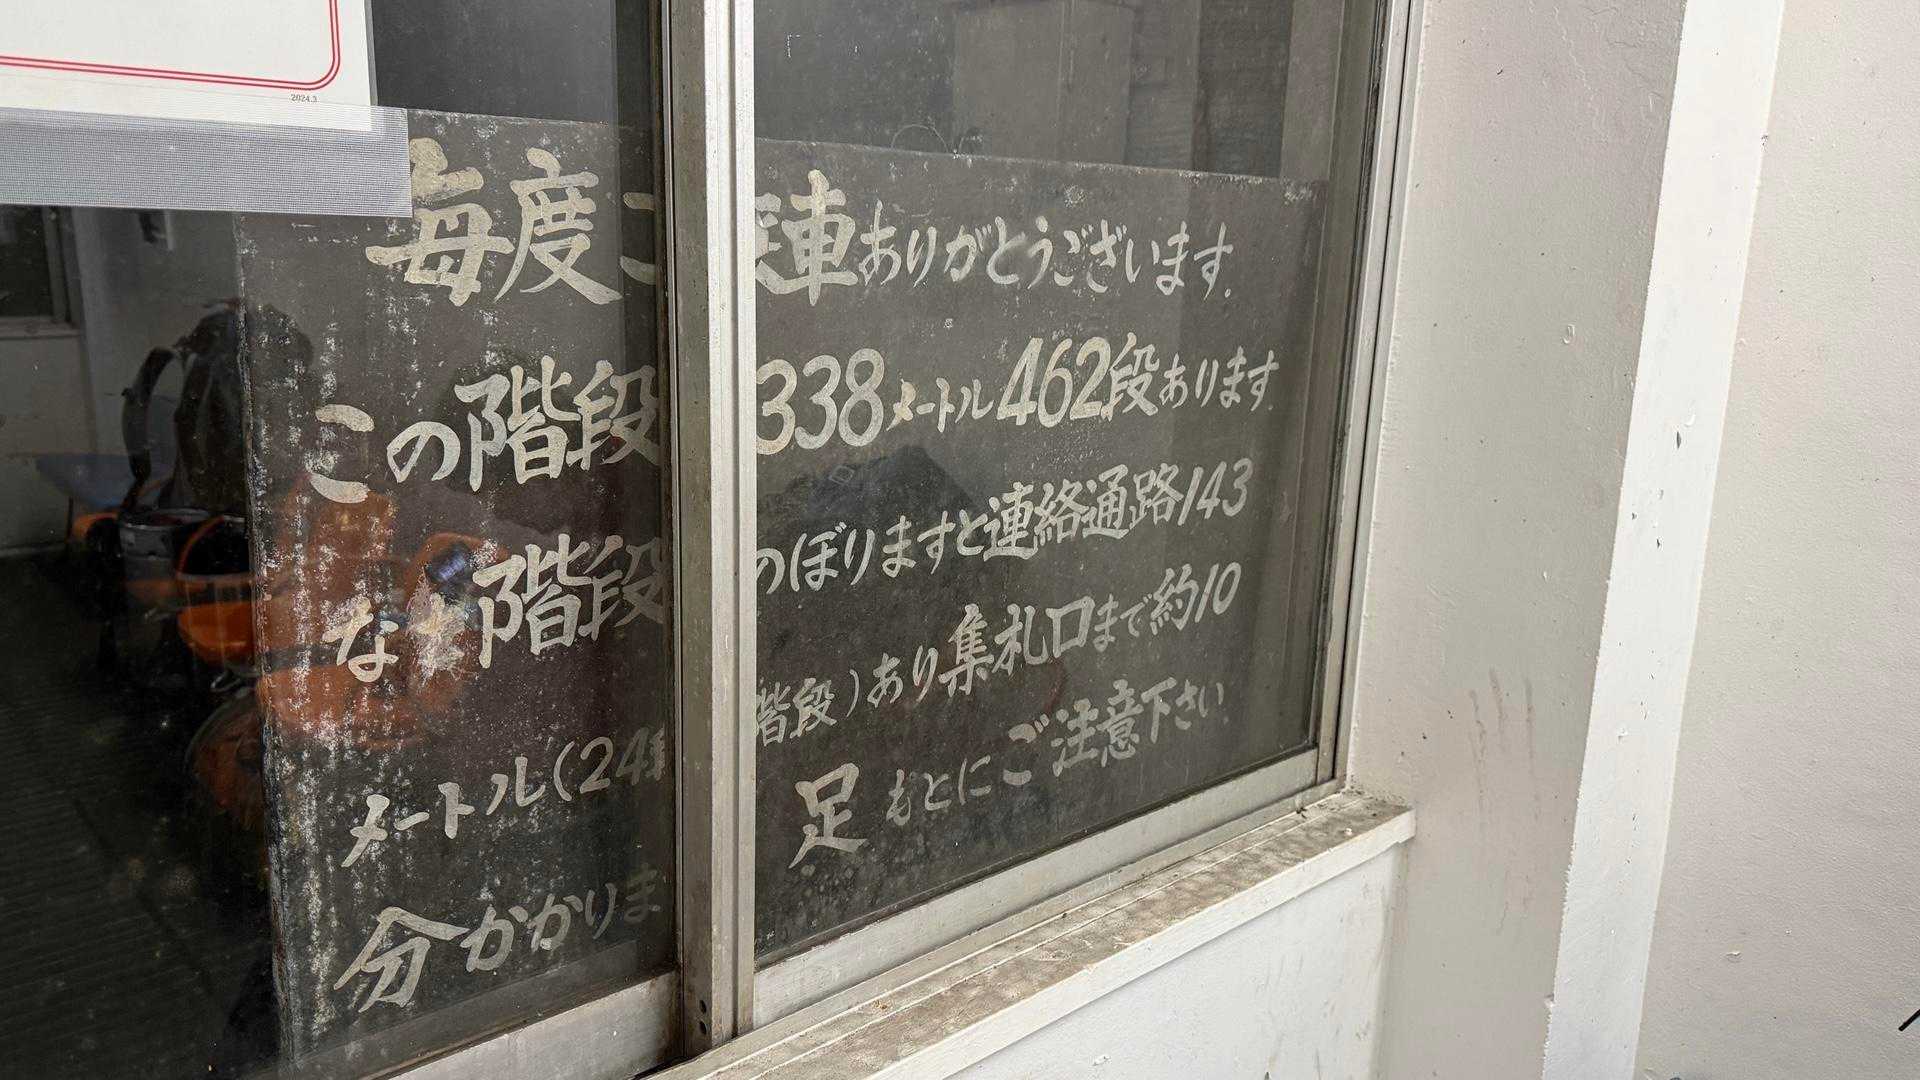 2024.3
毎度ご乗車ありがとうございます.
この階段 338メートル462段あります.
なお階段 のぼりますと連絡通路143
メートル(24段 階段)あり集札口まで約10
分かかりま 足もとにご注意下さい.